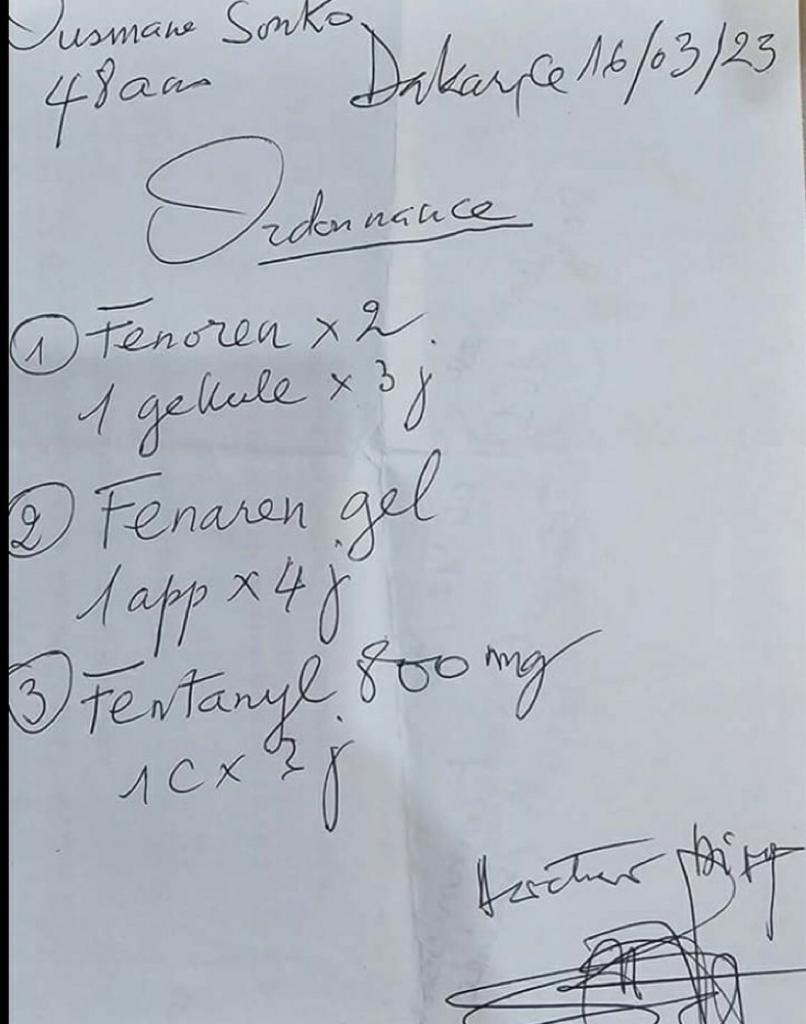 Ousmane Sonko
48 ans
Dakar, le 16/03/23
Ordonnance
1 Fenoren x 2.
1 gellule x 3 j
2 Fenaren gel
1 app x 4 j
3 Fentanyl 800 mg
1 C x 3 j